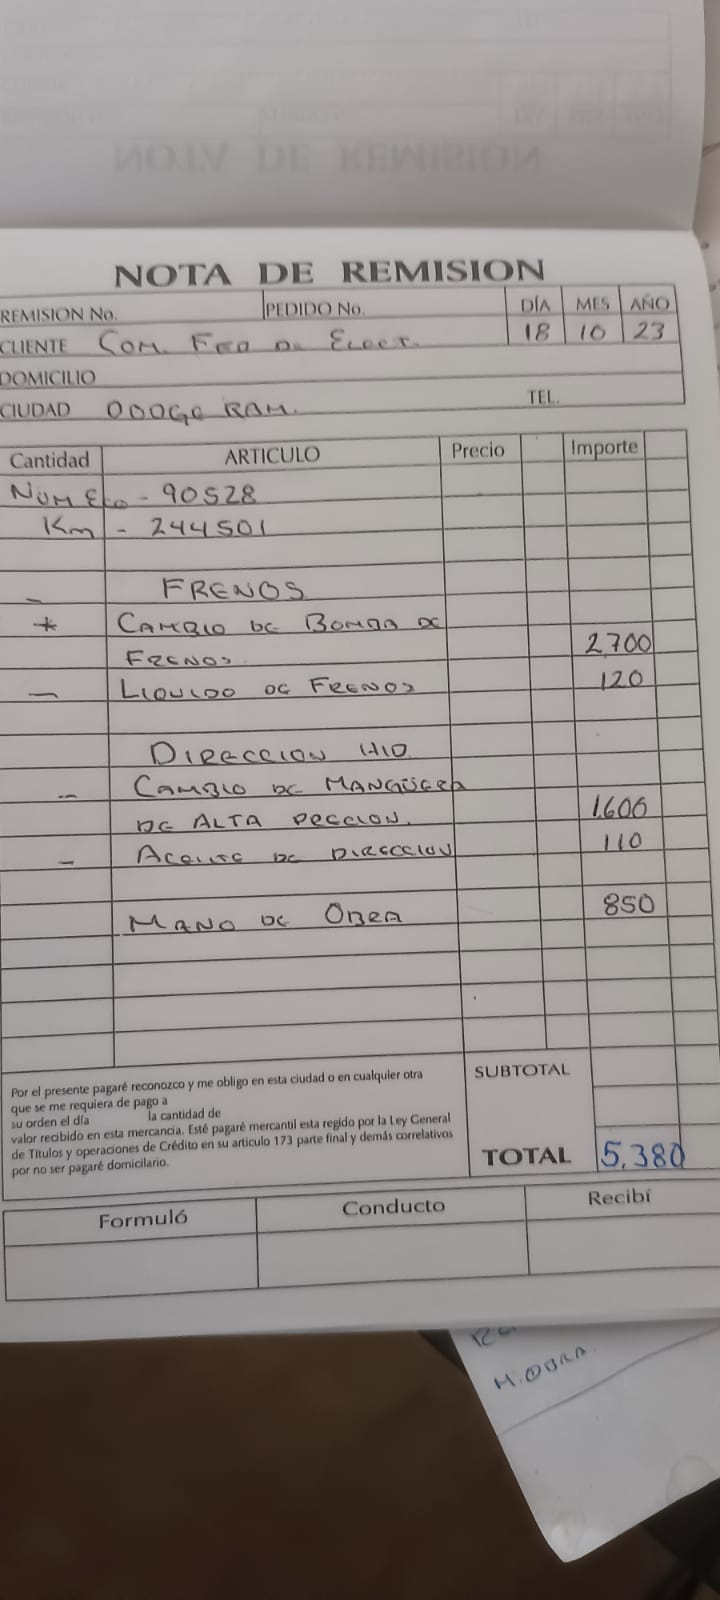 NOTA DE REMISION
NOTA DE REMISION
REMISION No. PEDIDO No. DÍA MES AÑO
CLIENTE COM. FED DE ELECT. 18 10 23
DOMICILIO
CIUDAD DODGE RAM. TEL.
Cantidad ARTICULO Precio Importe
NUM ECO - 90528
Km - 244501
- FRENOS
* CAMBIO DE BOMBA DE
FRENOS. 2,700
- LIQUIDO DE FRENOS 120
DIRECCION HID
- CAMBIO DE MANGÜERA
DE ALTA PRECCION. 1,600
- ACEITE DE DIRECCION 110
MANO DE OBRA 850
Por el presente pagaré reconozco y me obligo en esta ciudad o en cualquier otra
que se me requiera de pago a
su orden el día la cantidad de
valor recibido en esta mercancia. Esté pagaré mercantil esta regido por la Ley General
de Titulos y operaciones de Crédito en su articulo 173 parte final y demás correlativos
por no ser pagaré domicilario.
SUBTOTAL
TOTAL 5,380
Formuló Conducto Recibí
M. OBRA.